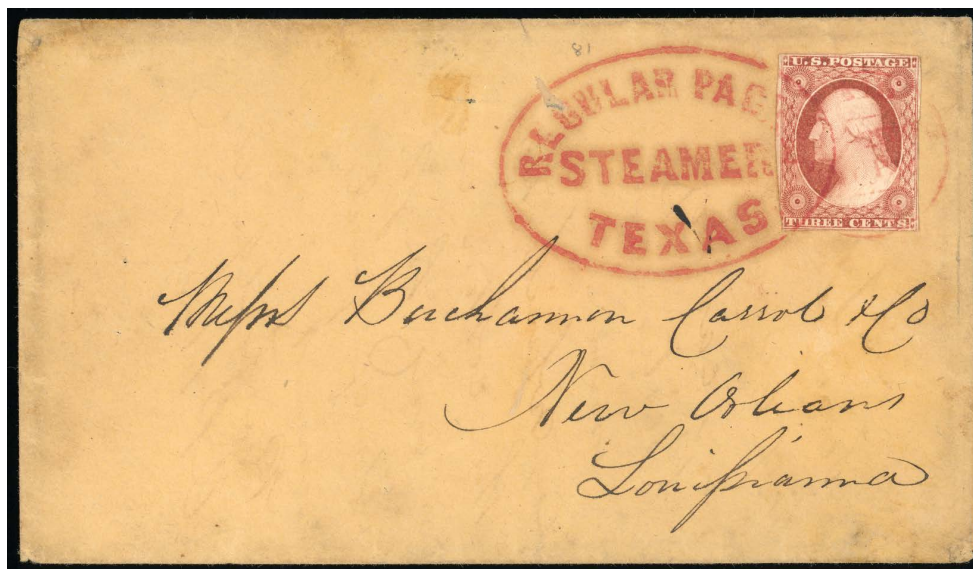 81
REGULAR PAC
STEAMER
TEXAS
U.S. POSTAGE
THREE CENTS
Messrs Buchannon Carrol & Co
New Orleans
Louissianna